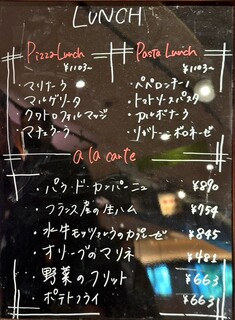 LUNCH
Pizza Lunch
¥1103~
・マリナーラ
・マルゲリータ
・クワトロフォルマッジ
・マチェラーラ
Pasta Lunch
¥1103~
・ペペロンチーノ
・トマトソースパスタ
・カルボナーラ
・リガトーニボロネーゼ
a la carte
・パテ・ド・カンパーニュ ¥890
・フランス産の生ハム ¥754
・水牛モッツァレラのカプレーゼ ¥845
・オリーブのマリネ ¥481
・野菜のフリット ¥663
・ポテトフライ ¥663